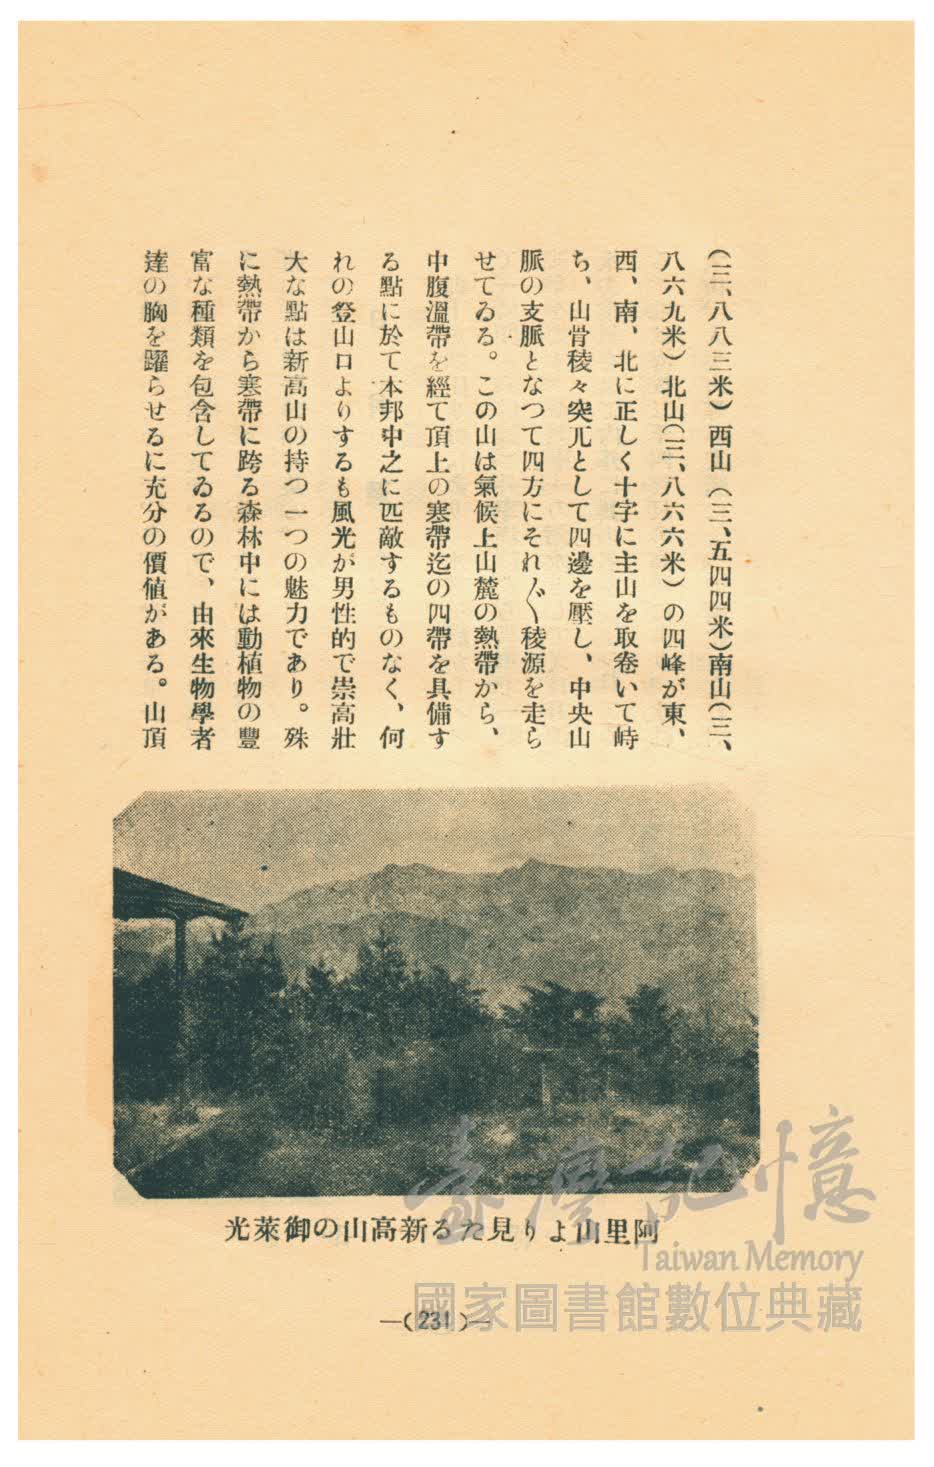 (三、八八三米)西山(三、五四四米)南山(三、
八六九米)北山(三、八六六米)の四峰が東、
西、南、北に正しく十字に主山を取卷いて峙
ち、山骨稜々突兀として四邊を壓し、中央山
脈の支脈となつて四方にそれ〴〵稜源を走ら
せてゐる。この山は氣候上山麓の熱帶から、
中腹溫帶を經て頂上の寒帶迄の四帶を具備す
る點に於て本邦中之に匹敵するものなく、何
れの登山口よりするも風光が男性的で崇高壯
大な點は新高山の持つ一つの魅力であり。殊
に熱帶から寒帶に跨る森林中には動植物の豐
富な種類を包含してゐるので、由來生物學者
達の胸を躍らせるに充分の價値がある。山頂
阿里山より見たる新高山の御萊光
—(231)—
臺灣記憶
Taiwan Memory
國家圖書館數位典藏